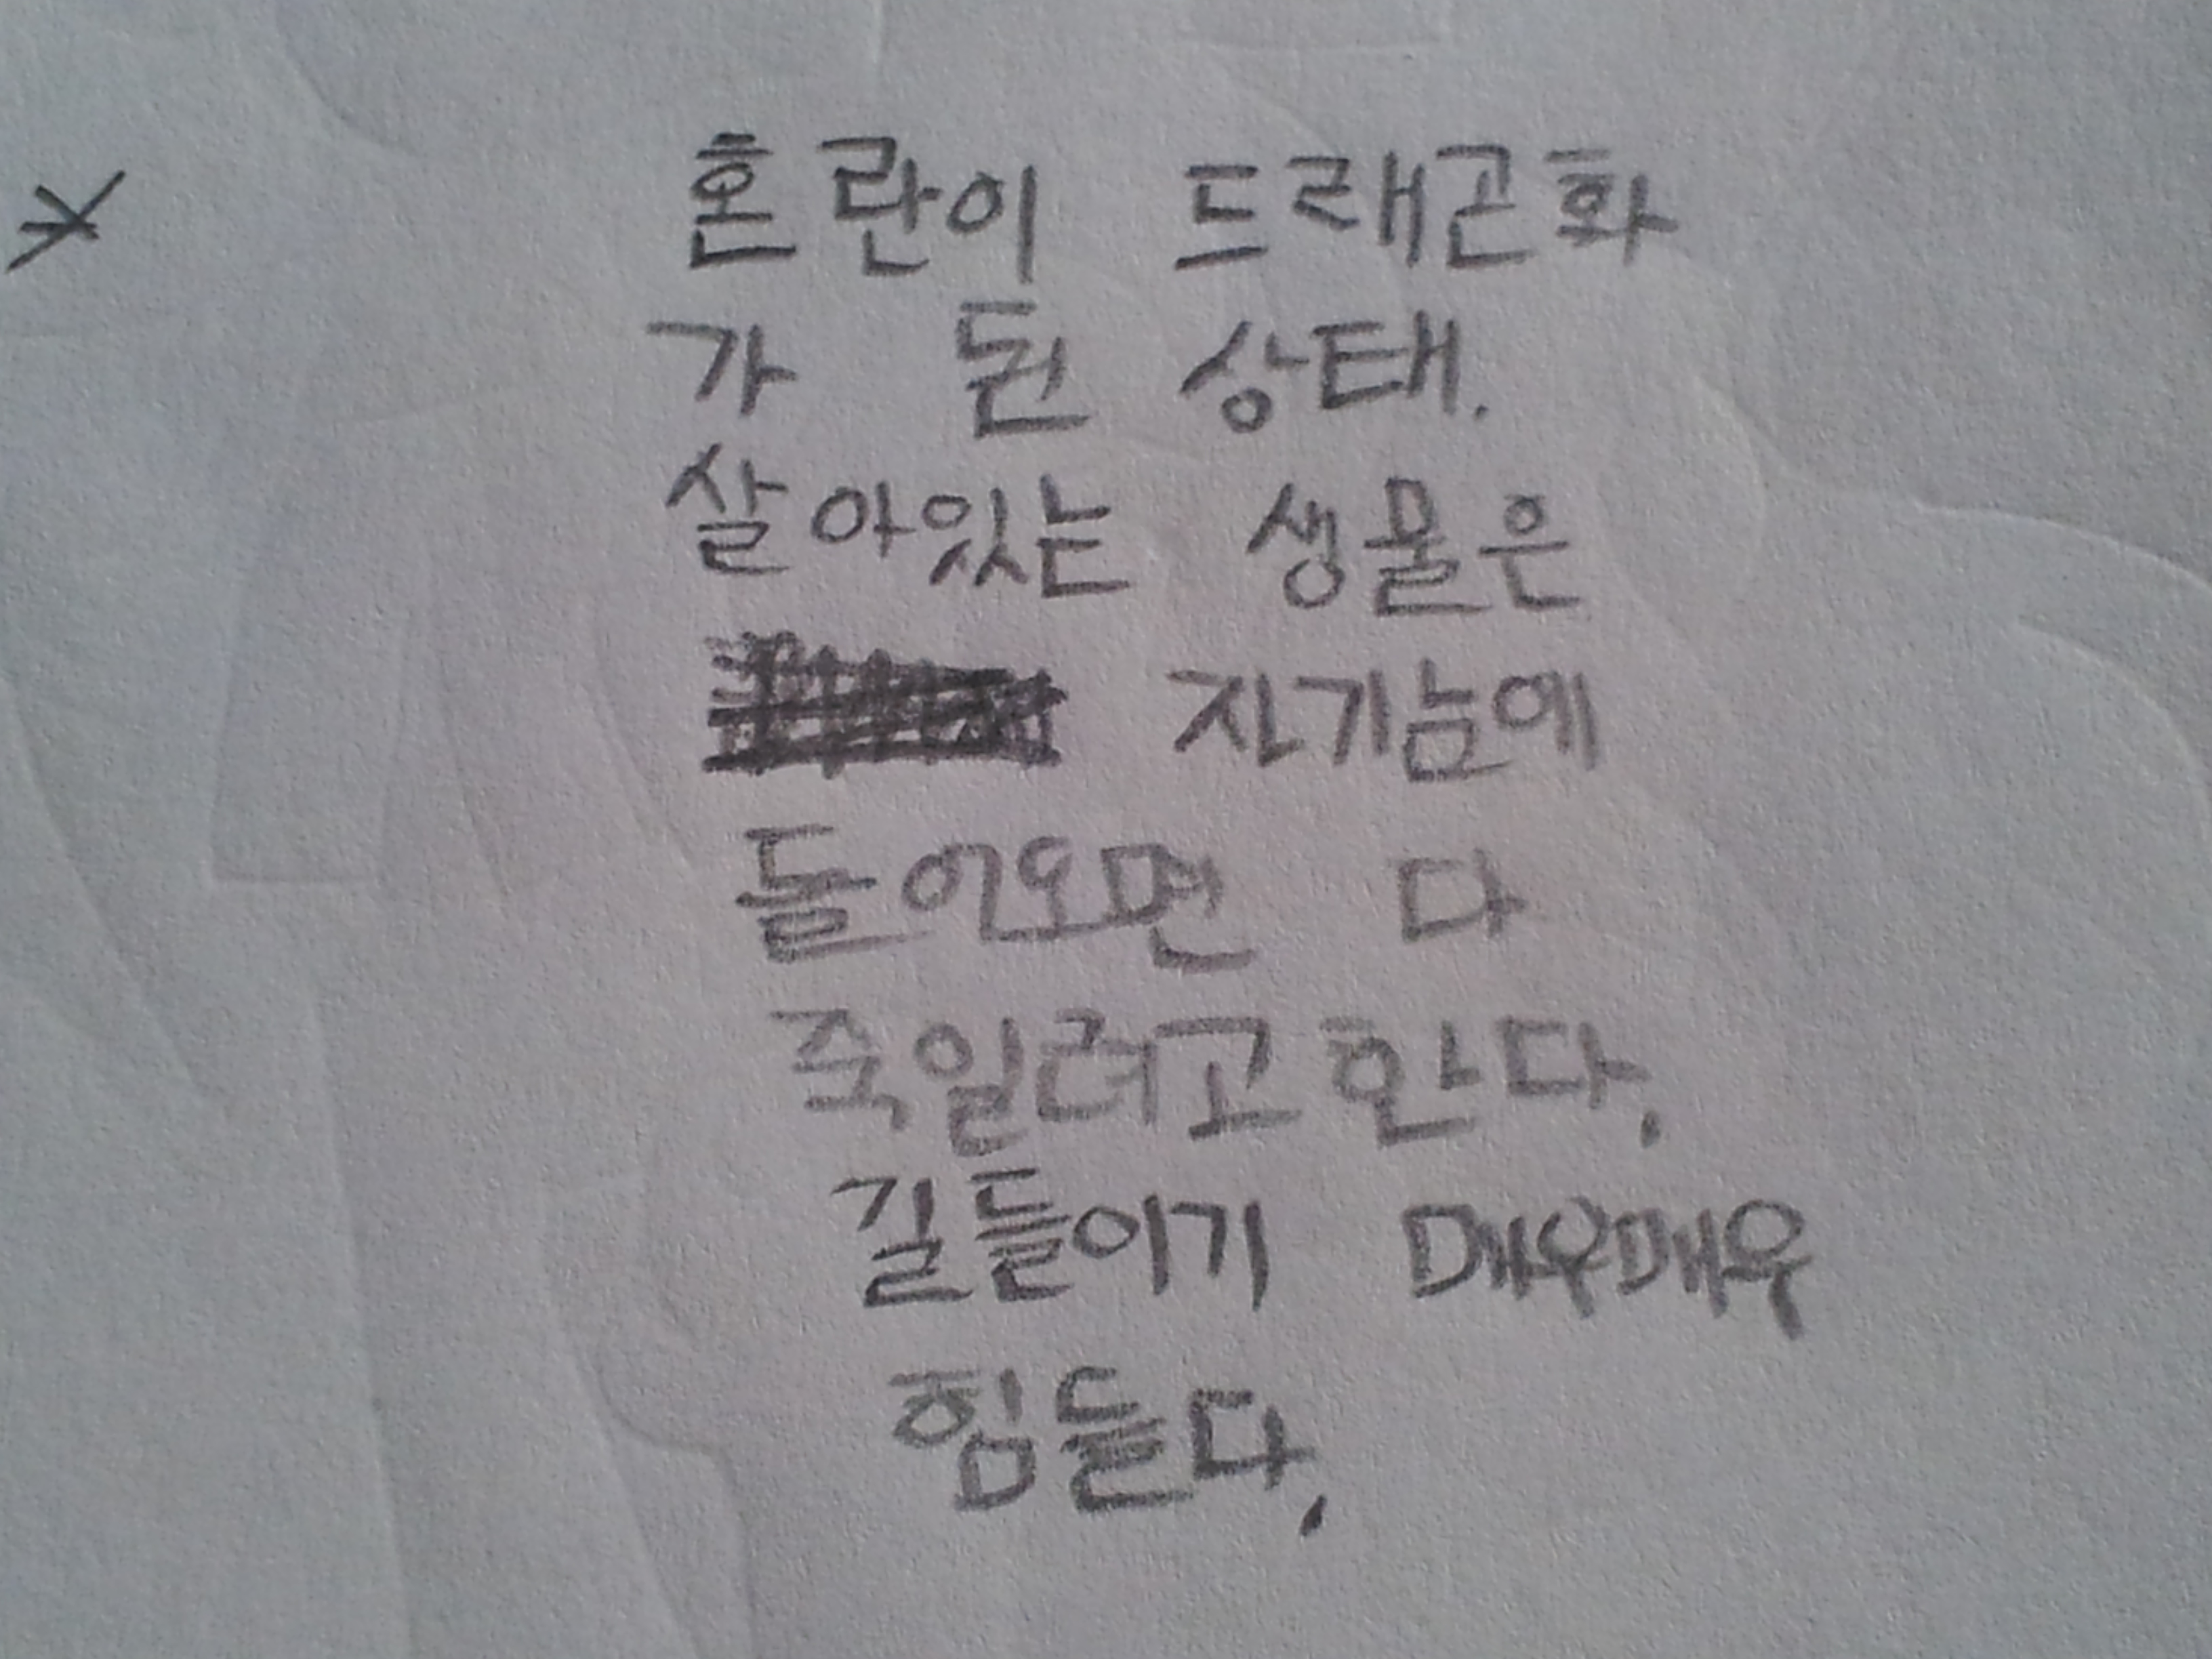 혼란이 드래곤화
가 된 상태.
살아있는 생물은
자기눈에
들어오면 다
죽일려고한다.
길들이기 매우매우
힘들다.